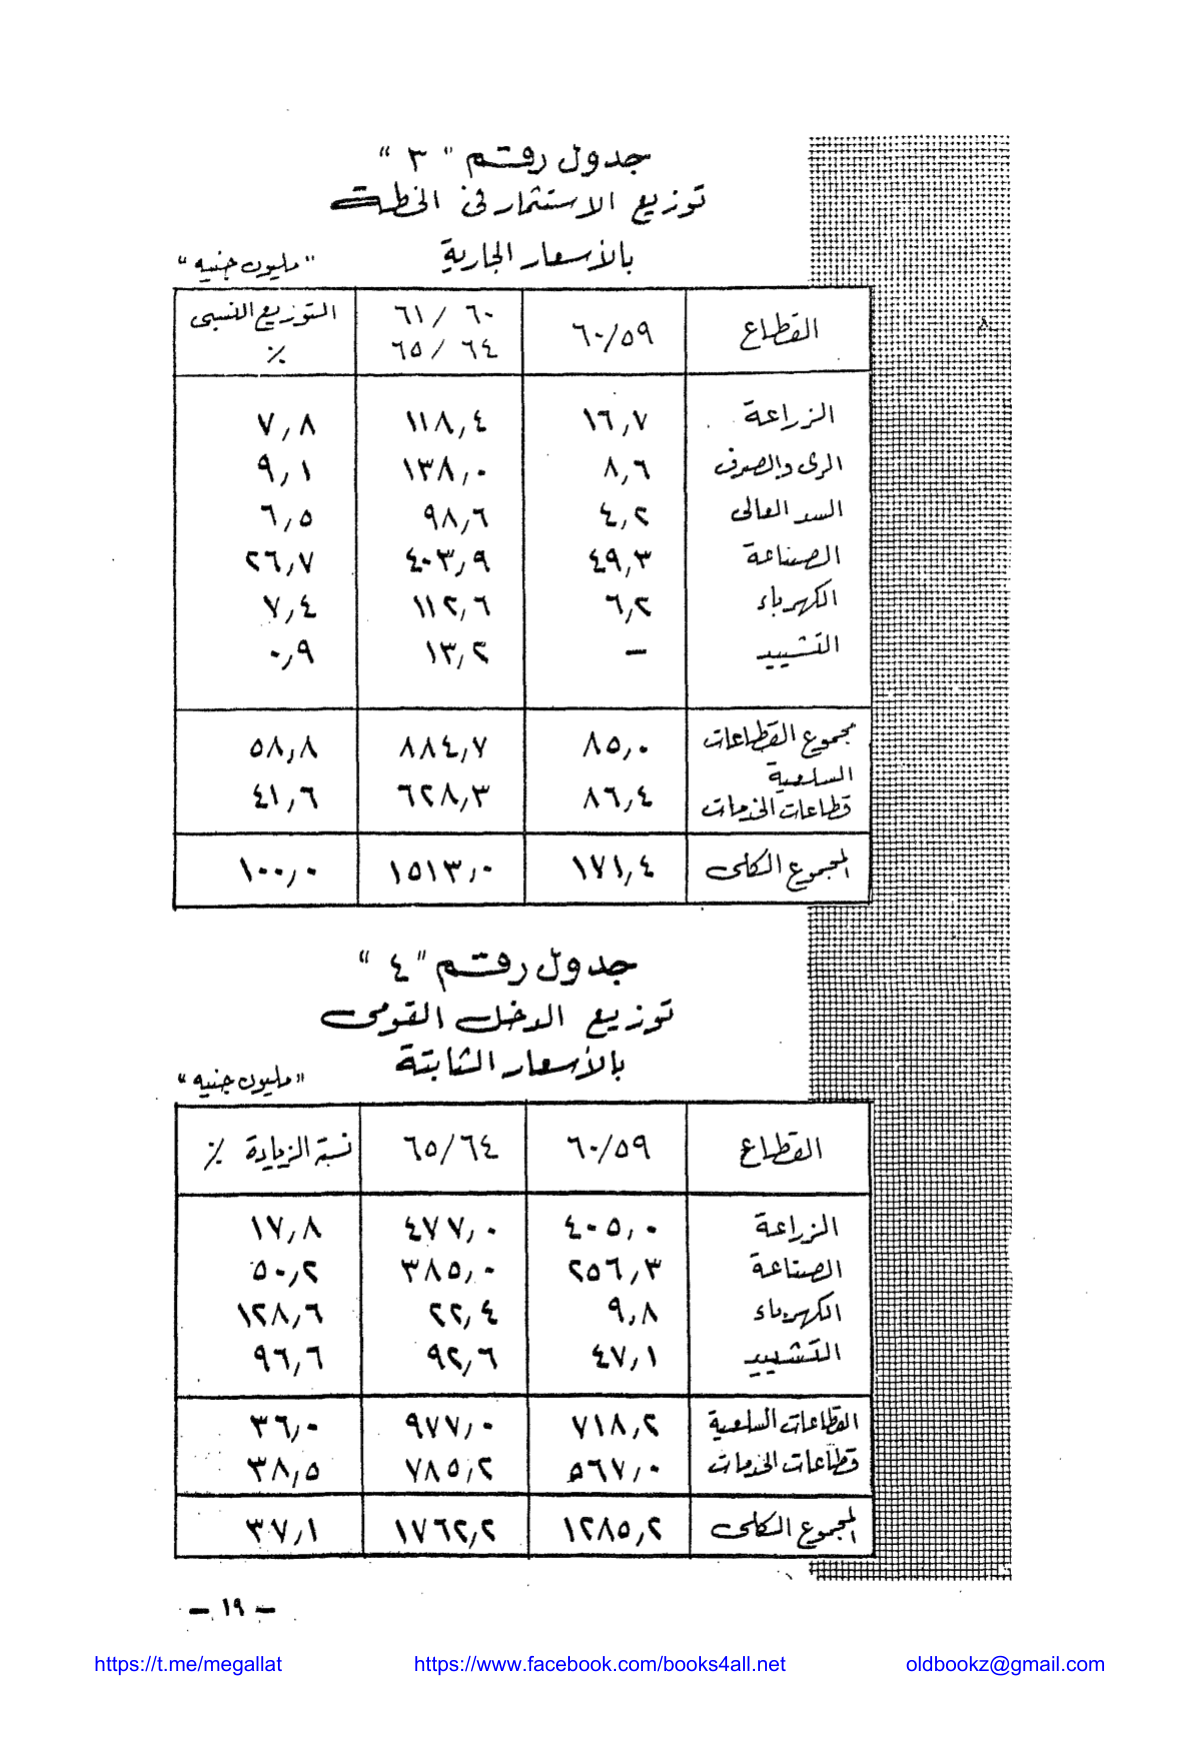 جدول رقم "٣"
توزيع الاستثمار فى الخطة
بالأسعار الجارية
"مليون جنيه"
القطاع ٦٠/٥٩ ٦١/٦٠ التوزيع النسبى
٦٥/٦٤ ٪
الزراعة ١٦,٧ ١١٨,٤ ٧,٨
الرى والصرف ٨,٦ ١٣٨,٠ ٩,١
السد العالى ٤,٢ ٩٨,٦ ٦,٥
الصناعة ٤٩,٣ ٤٠٣,٩ ٢٦,٧
الكهرباء ٦,٢ ١١٢,٦ ٧,٤
التشييد – ١٣,٢ ٠,٩
مجموع القطاعات ٨٥,٠ ٨٨٤,٧ ٥٨,٨
السلعية
قطاعات الخدمات ٨٦,٤ ٦٢٨,٣ ٤١,٦
المجموع الكلى ١٧١,٤ ١٥١٣,٠ ١٠٠,٠
جدول رقم "٤"
توزيع الدخل القومى
بالأسعار الثابتة
"مليون جنيه"
القطاع ٦٠/٥٩ ٦٥/٦٤ نسبة الزيادة ٪
الزراعة ٤٠٥,٠ ٤٧٧,٠ ١٧,٨
الصناعة ٢٥٦,٣ ٣٨٥,٠ ٥٠,٢
الكهرباء ٩,٨ ٢٢,٤ ١٢٨,٦
التشييد ٤٧,١ ٩٢,٦ ٩٦,٦
القطاعات السلعية ٧١٨,٢ ٩٧٧,٠ ٣٦,٠
قطاعات الخدمات ٥٦٧,٠ ٧٨٥,٢ ٣٨,٥
المجموع الكلى ١٢٨٥,٢ ١٧٦٢,٢ ٣٧,١
– ١٩ –
https://t.me/megallat https://www.facebook.com/books4all.net oldbookz@gmail.com